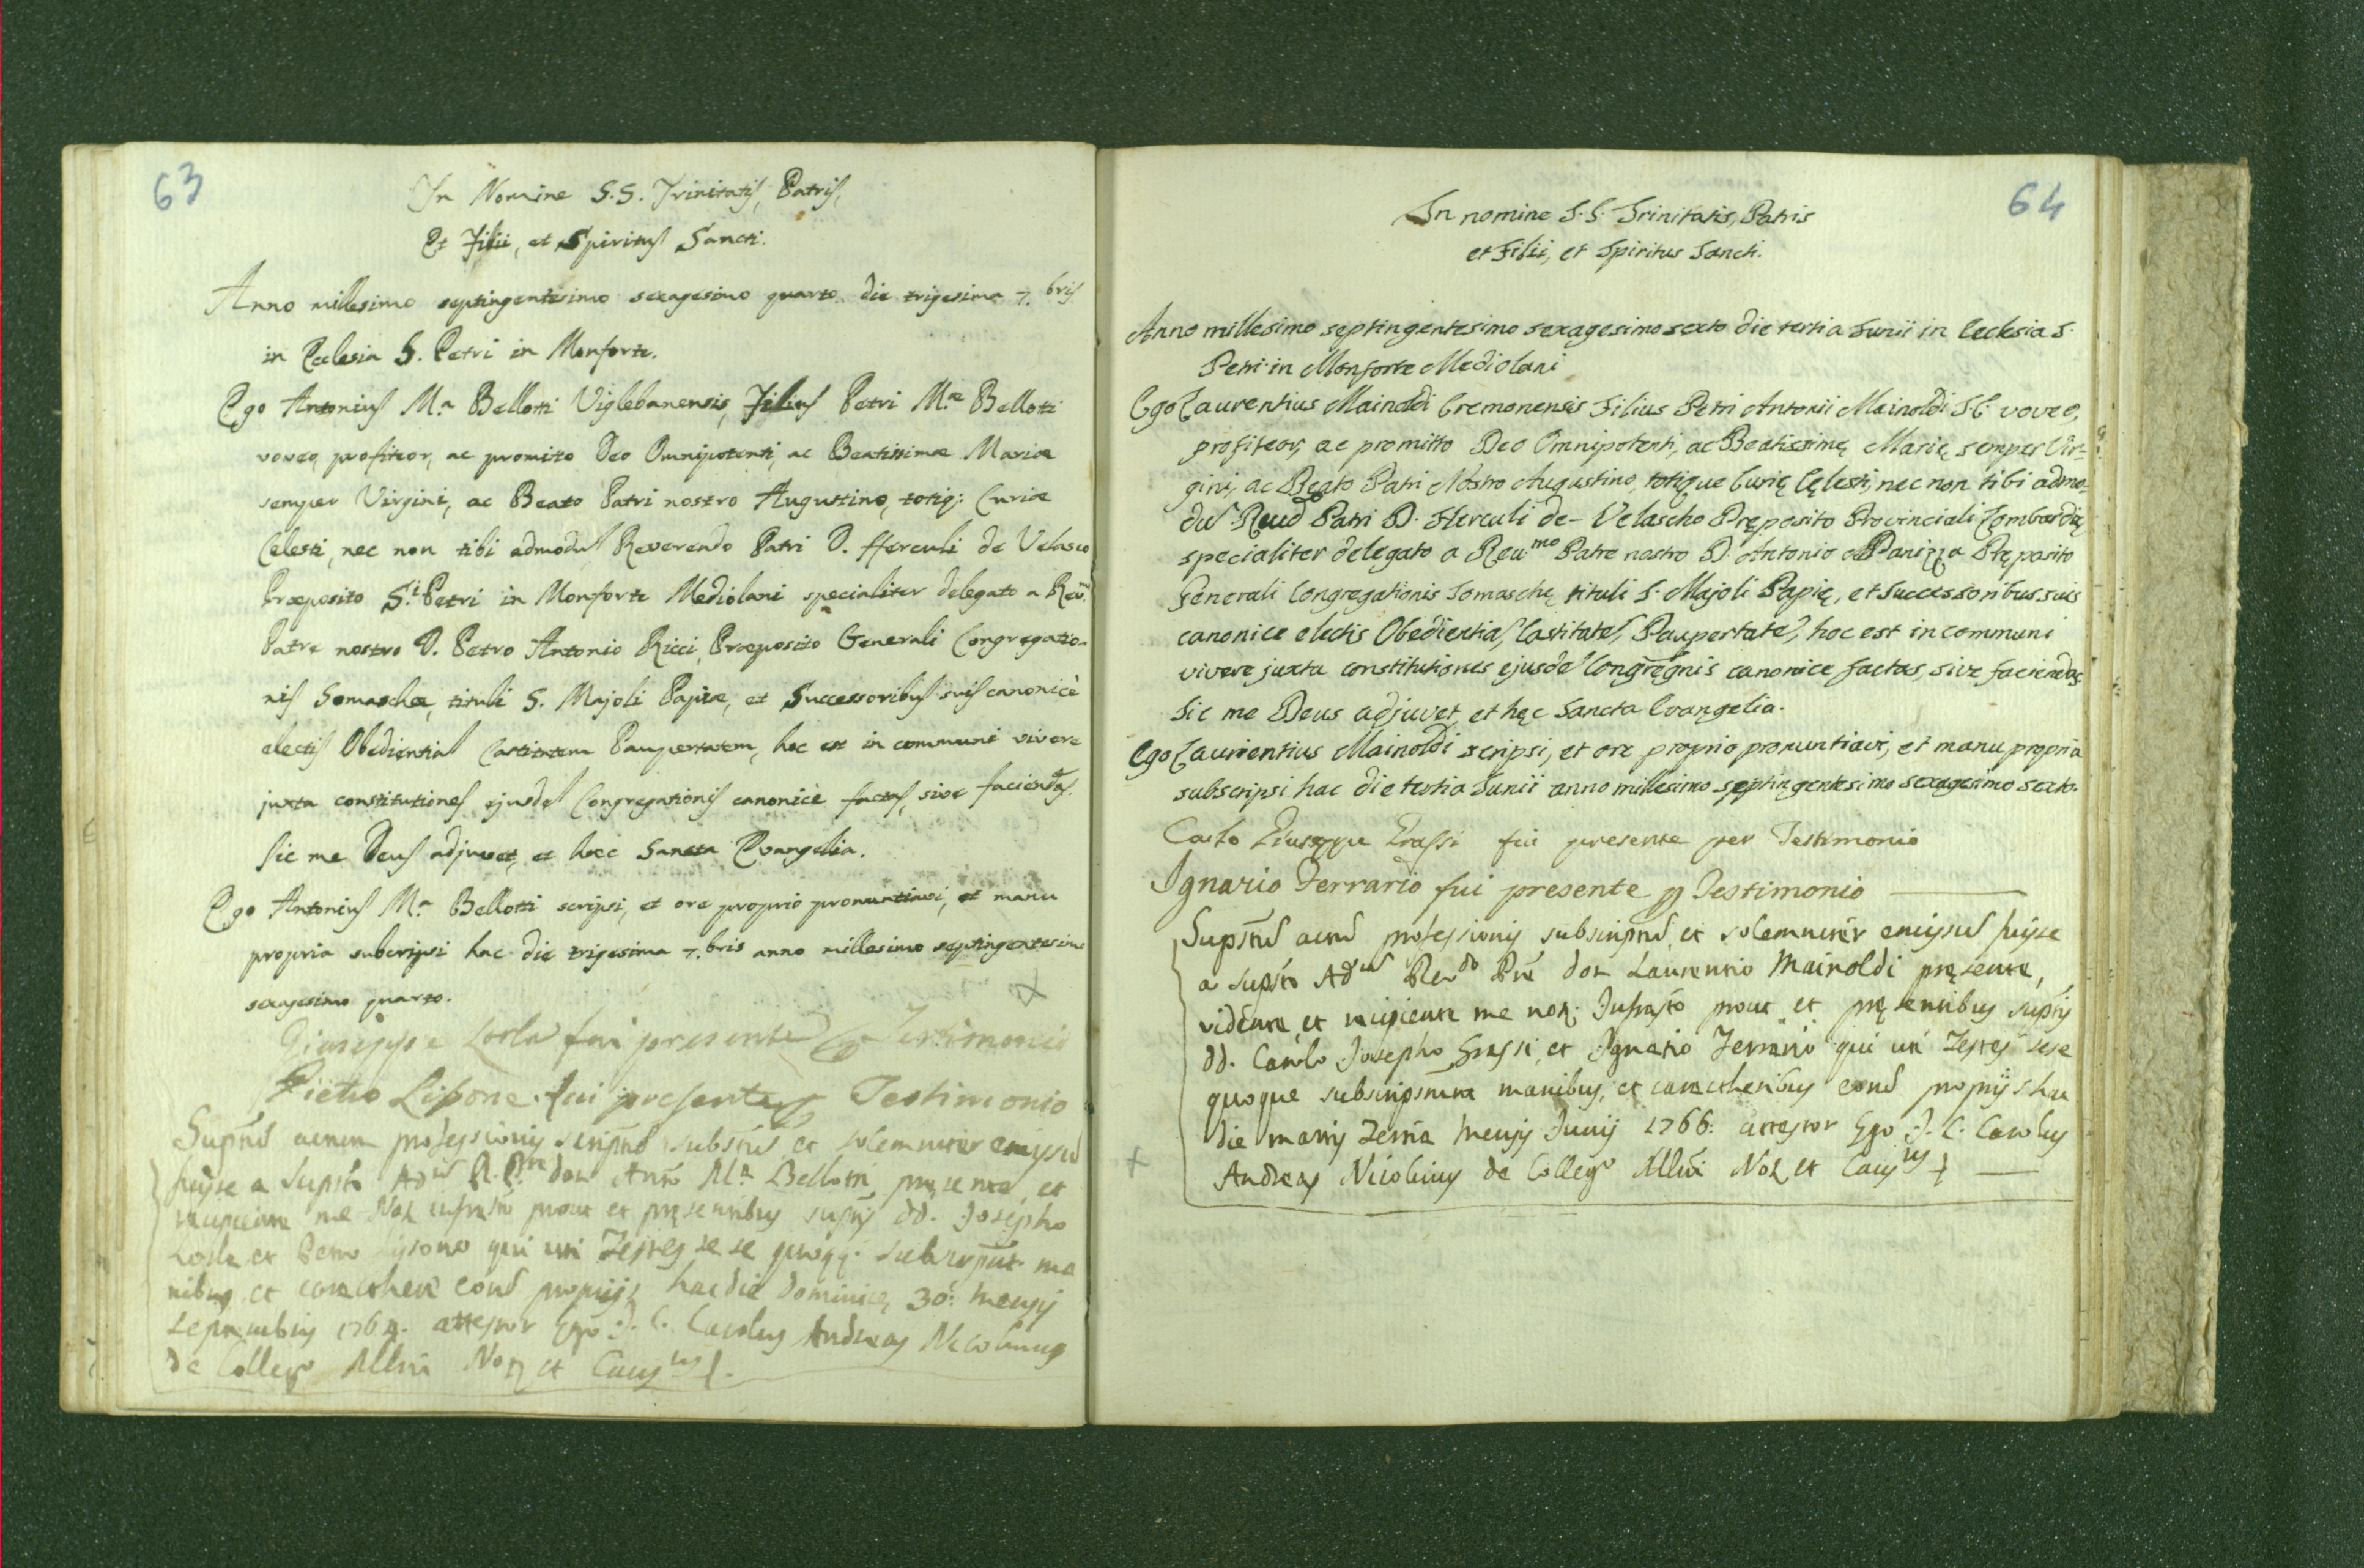 63
In Nomine S.S. Trinitatis, Patris,
Et Filii, et Spiritus Sancti.
Anno millesimo septingentesimo sexagesimo quarto die trigesima 7.bris
in Ecclesia S. Petri in Monforte.
Ego Antonius M.a Bellotti Viglebanensis, Filius Petri M.ae Bellotti
voveo, profiteor, ac promitto Deo Omnipotenti, ac Beatissimae Mariae
semper Virgini, ac Beato Patri nostro Augustino, totiq: Curiae
Celesti, nec non tibi admodu Reverendo Patri D. Herculi de Velasco
Praeposito S.ti Petri in Monforte Mediolani specialiter delegato a Rev.mo
Patre nostro D. Petro Antonio Ricci Praeposito Generali Congregatio-
nis Somaschae, tituli S. Majoli Papiae, et Successoribus suis canonicè
electis Obedientia Castitatem Paupertatem, hoc est in communi vivere
juxta constitutiones ejusde Congregationis canonicè factas, sive faciendas.
Sic me Deus adjuvet, et haec Sancta Evangelia.
Ego Antonius M.a Bellotti scripsi, et ore proprio pronuntiavi, et manu
propria subscripsi hac die trigesima 7.bris anno millesimo septingentesimo
sexagesimo quarto.
Giuseppe fui presente Testimonio
Pietro Lisone fui presente Testimonio
professionis et solemniter
a Bellotti presente, et
me Not et presentibus dd. Josepho
et qui uti Testes se se quoq.
nibus, et hac die Dominica, 30: mensis
1764. attestor Ego J. C. Carolus Andreas Nicolinus
de Colleg.o Mllni Not et Caus.cus
64
In nomine S.S. Trinitatis, Patris
et Filii, et Spiritus Sancti.
Anno millesimo septingentesimo sexagesimo sexto die tertia Junii in Ecclesia S.
Petri in Monforte Mediolani
Ego Laurentius Mainoldi Cremonensis Filius Petri Antonii Mainoldi J.C. voveo,
profiteor, ac promitto Deo Omnipotenti, ac Beatissimę Marię semper Vir=
gini, ac Beato Patri Nostro Augustino, totique Curię Cęlesti, nec non tibi admo=
du Reudo Patri D. Herculi de-Velascho Pręposito Provinciali Lombardię
specialiter delegato a Reumo Patre nostro D. Antonio Panizza Pręposito
Generali Congregationis Somaschę tituli S. Majoli Papię, et Successoribus suis
canonice electis Obedientia, Castitate, Paupertate, hoc est in communi
vivere juxta constitutiones ejusde Congregnis canonice factas, sive faciendas.
Sic me Deus adjuvet, et hęc Sancta Evangelia.
Ego Laurientius Mainoldi scripsi, et ore proprio pronuntiavi, et manu propria
subscripsi hac die tertia Junii anno millesimo septingentesimo sexagesimo sexto.
Carlo Giuseppe Grassi fui presente per Testimonio
Ignazio Ferrario fui presente p Testimonio
professionis et solemniter
a don Laurentio Mainoldi pręsente,
vidente, et recipiente me not: prout et pręsentibus
dd. Carolo Josepho Grassi, et Ignatio Ferrario qui uti Testes sese
quoque manibus, et caractheribus propriis hac
die martis Tertia mensis Junij 1766: attestor Ego J. C. Carolus
Andreas Nicolinus de Colleg.o Mllni Not et Caus.cus